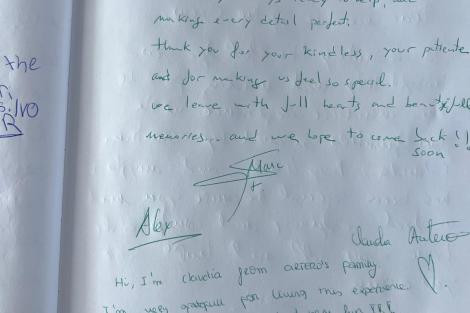 making every detail perfect.
the
thank you for your kindless, your patiente
and for making us feel so special.
we leave with full hearts and beautiful
memories... and we hope to come back!!
soon
R
Marc
Alex
Claudia Artero
Hi, I'm claudia from ARTERO'S family
I'm very gratefull for living this experience.